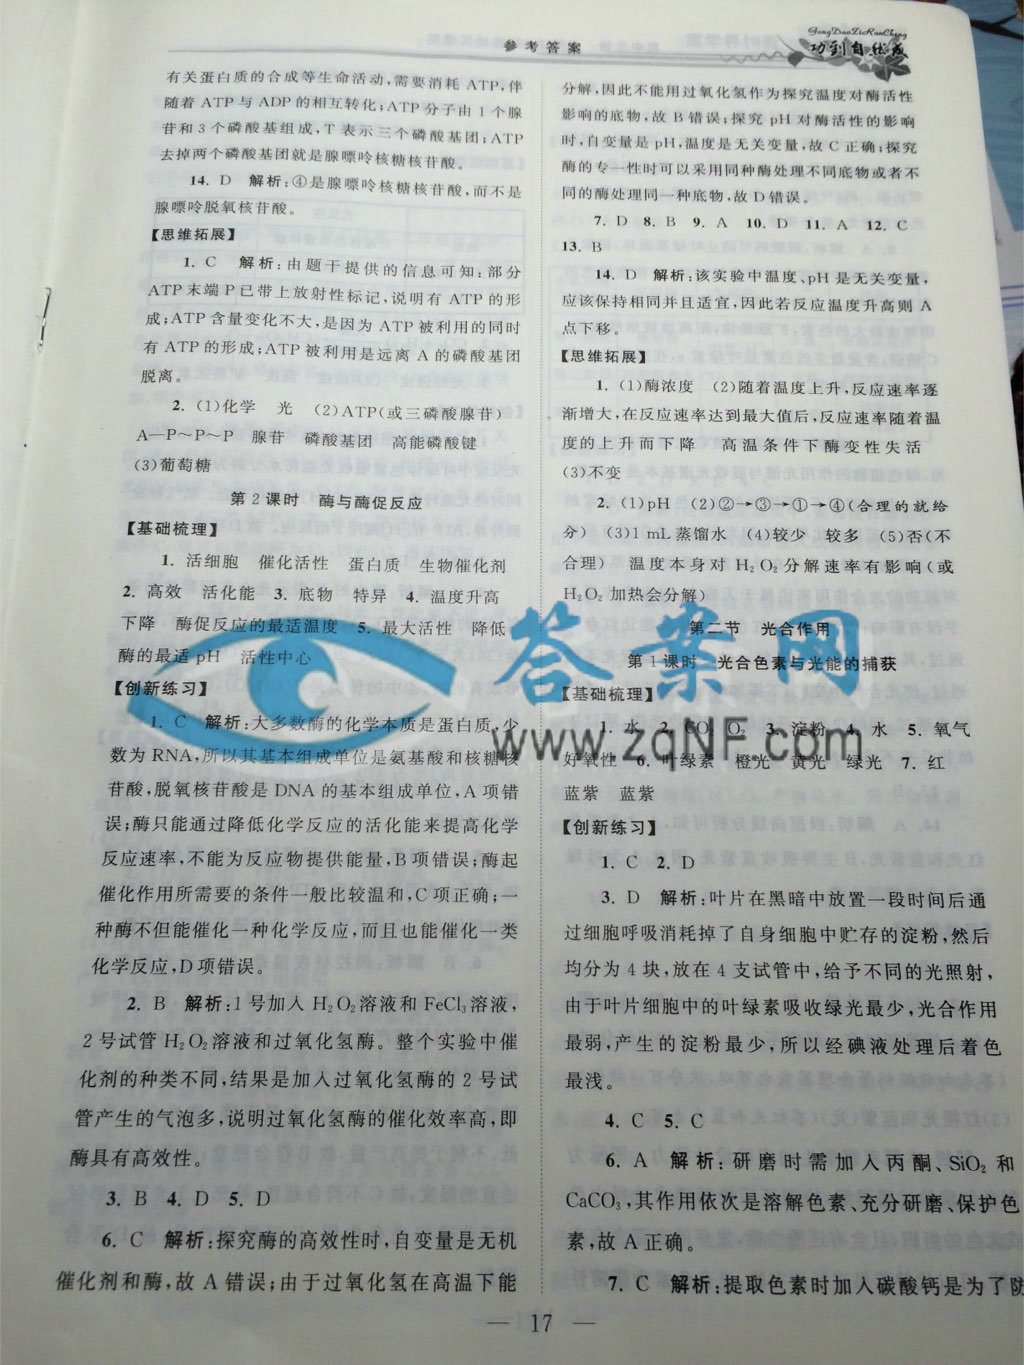 参考答案
GongDaoZiRanCheng
功到自然成
有关蛋白质的合成等生命活动,需要消耗 ATP,伴
随着 ATP 与 ADP 的相互转化;ATP 分子由 1 个腺
苷和 3 个磷酸基组成,T 表示三个磷酸基团;ATP
去掉两个磷酸基团就是腺嘌呤核糖核苷酸。
14. D 解析:④是腺嘌呤核糖核苷酸,而不是
腺嘌呤脱氧核苷酸。
【思维拓展】
1. C 解析:由题干提供的信息可知:部分
ATP 末端 P 已带上放射性标记,说明有 ATP 的形
成;ATP 含量变化不大,是因为 ATP 被利用的同时
有 ATP 的形成;ATP 被利用是远离 A 的磷酸基团
脱离。
2. (1)化学 光 (2)ATP(或三磷酸腺苷)
A—P～P～P 腺苷 磷酸基团 高能磷酸键
(3)葡萄糖
第 2 课时 酶与酶促反应
【基础梳理】
1. 活细胞 催化活性 蛋白质 生物催化剂
2. 高效 活化能 3. 底物 特异 4. 温度升高
下降 酶促反应的最适温度 5. 最大活性 降低
酶的最适 pH 活性中心
【创新练习】
1. C 解析:大多数酶的化学本质是蛋白质,少
数为 RNA,所以其基本组成单位是氨基酸和核糖核
苷酸,脱氧核苷酸是 DNA 的基本组成单位,A 项错
误;酶只能通过降低化学反应的活化能来提高化学
反应速率,不能为反应物提供能量,B 项错误;酶起
催化作用所需要的条件一般比较温和,C 项正确;一
种酶不但能催化一种化学反应,而且也能催化一类
化学反应,D 项错误。
2. B 解析:1 号加入 H₂O₂溶液和 FeCl₃溶液,
2 号试管 H₂O₂溶液和过氧化氢酶。整个实验中催
化剂的种类不同,结果是加入过氧化氢酶的 2 号试
管产生的气泡多,说明过氧化氢酶的催化效率高,即
酶具有高效性。
3. B 4. D 5. D
6. C 解析:探究酶的高效性时,自变量是无机
催化剂和酶,故 A 错误;由于过氧化氢在高温下能
分解,因此不能用过氧化氢作为探究温度对酶活性
影响的底物,故 B 错误;探究 pH 对酶活性的影响
时,自变量是 pH,温度是无关变量,故 C 正确;探究
酶的专一性时可以采用同种酶处理不同底物或者不
同的酶处理同一种底物,故 D 错误。
7. D 8. B 9. A 10. D 11. A 12. C
13. B
14. D 解析:该实验中温度、pH 是无关变量,
应该保持相同并且适宜,因此若反应温度升高则 A
点下移。
【思维拓展】
1. (1)酶浓度 (2)随着温度上升,反应速率逐
渐增大,在反应速率达到最大值后,反应速率随着温
度的上升而下降 高温条件下酶变性失活
(3)不变
2. (1)pH (2)②→③→①→④(合理的就给
分) (3)1 mL 蒸馏水 (4)较少 较多 (5)否(不
合理) 温度本身对 H₂O₂ 分解速率有影响(或
H₂O₂ 加热会分解)
第二节 光合作用
第 1 课时 光合色素与光能的捕获
【基础梳理】
1. 水 2. CO₂ O₂ 3. 淀粉 4. 水 5. 氧气
好氧性 6. 叶绿素 橙光 黄光 绿光 7. 红
蓝紫 蓝紫
【创新练习】
1. C 2. D
3. D 解析:叶片在黑暗中放置一段时间后通
过细胞呼吸消耗掉了自身细胞中贮存的淀粉,然后
均分为 4 块,放在 4 支试管中,给予不同的光照射,
由于叶片细胞中的叶绿素吸收绿光最少,光合作用
最弱,产生的淀粉最少,所以经碘液处理后着色
最浅。
4. C 5. C
6. A 解析:研磨时需加入丙酮、SiO₂ 和
CaCO₃,其作用依次是溶解色素、充分研磨、保护色
素,故 A 正确。
7. C 解析:提取色素时加入碳酸钙是为了防
答案网
www.zqNF.com
— 17 —